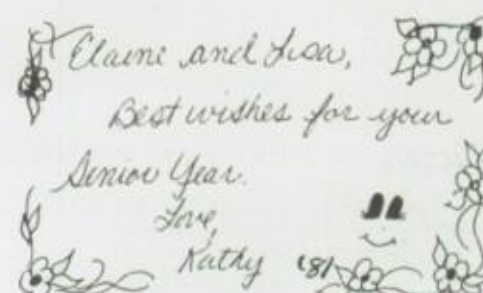 Elaine and Lisa,
Best wishes for your
Senior Year.
Love,
Kathy '81